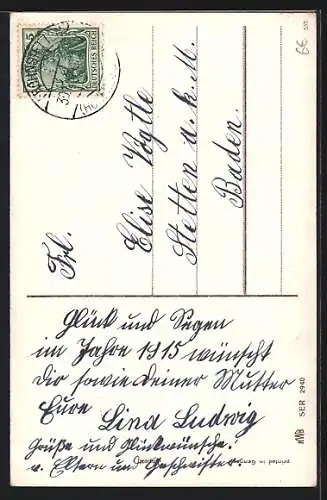 5
DEUTSCHES REICH
66
Frl.
Elise Vögtle
Stetten a. k. M.
Baden.
Glück und Segen
im Jahre 1915 wünscht
Dir sowie Deiner Mutter
Eure
Lina Ludwig
Grüße und Glückwünsche!
v. Eltern und Geschwister.
printed in
HWB SER 2940